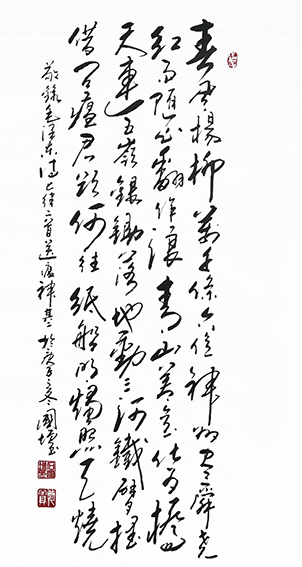 春風楊柳萬千條六億神州盡舜堯
紅雨隨心翻作浪青山著意化為橋
天連五嶺銀鋤落地動三河鐵臂搖
借問瘟君欲何往紙船明燭照天燒
敬錄毛澤東詩七律二首送瘟神其二於庚子冬國